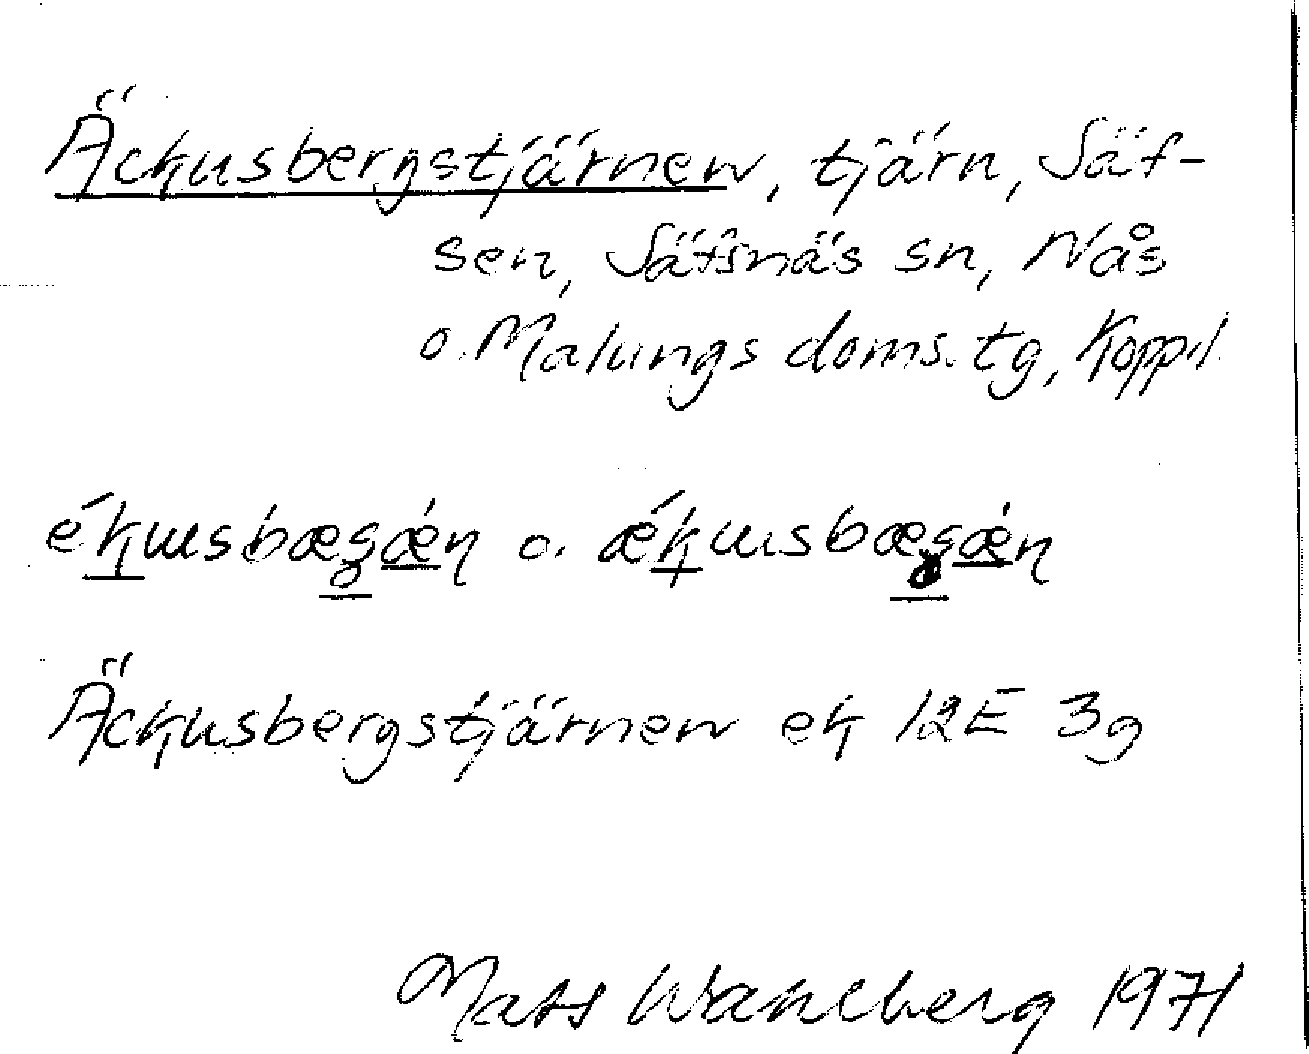 Äckusbergstjärnen, tjärn, Säf-
sen, Säfsnäs sn, Nås
o. Malungs doms. tg, Kopp. l.
o.
Äckusbergstjärnen ek 12E 3g
Mats Wahlberg 1971